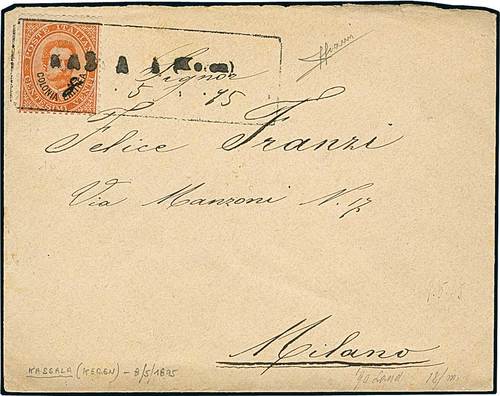 POSTE ITALIANE
COLONIA ERITREA
CENTESIMI VENTI
KASALA (K.en)
Signor
5 95
Felice Franzi
Via Manzoni N. 17
Milano
KASSALA (KEREN) - 8/5/1895